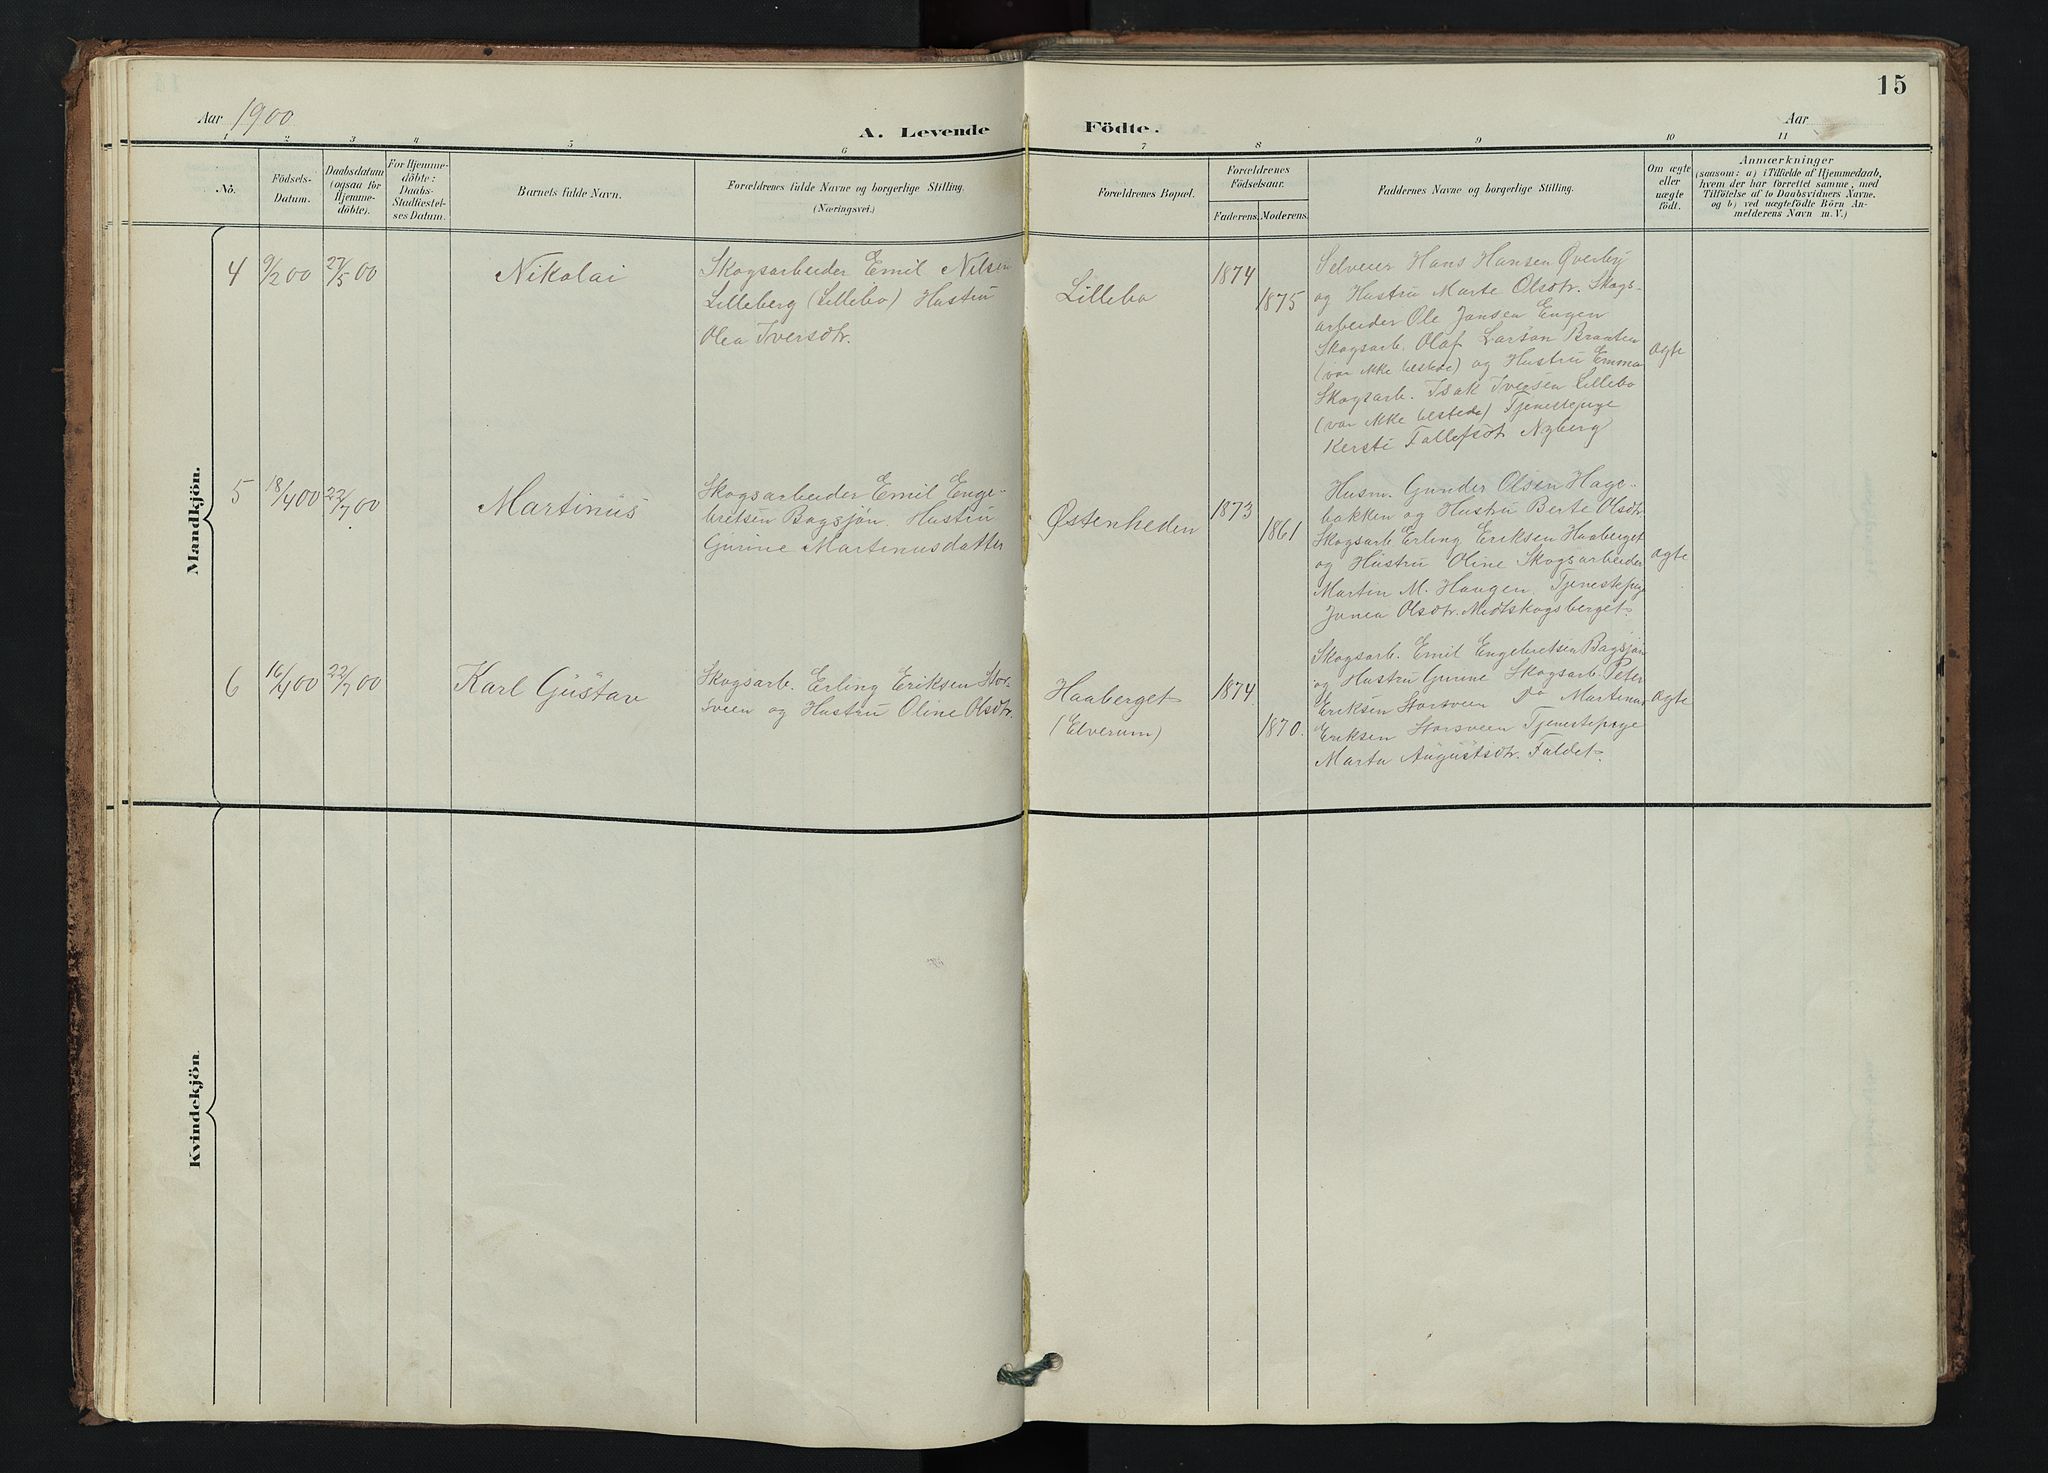 15
Aar 1900
A. Levende Födte.
Aar
1 2 3 4 5 6 7 8 9 10 11
No.
Födsels-
Datum.
Daabsdatum
(ogsaa for
Hjemme-
döbte).
For Hjemme-
döbte:
Daabs-
Stadfæstel-
ses Datum.
Barnets fulde Navn.
Forældrenes fulde Navne og borgerlige Stilling.
(Næringsvei.)
Forældrenes Bopæl.
Forældrenes
Födselsaar.
Faderens. Moderens.
Faddernes Navne og borgerlige Stilling.
Om ægte
eller
uægte
födt.
Anmærkninger
(saasom: a) i Tilfælde af Hjemmedaab,
hvem der har forrettet samme, med
Tilföielse af to Daabsvidners Navne.
og b) ved uægtefödte Börn An-
melderens Navn m. V.)
Mandkjön.
4 9/2 00 27/5 00 Nikolai
Skogsarbeider Emil Nilsen
Lilleberg (Lillebo) Hustru
Olea Iversdtr.
Lillebo
1874
1875
Selveier Hans Hansen Øverby
og Hustru Marte Olsdtr. Skogs-
arbeider Ole Jansen Engen
Skogsarb. Olaf Larson Braaten
(var ikke tilstede) og Hustru Emma
Skogsarb. Isak Iversen Lillebo
(var ikke tilstede) Tjenestepige
Kersti Tollefsdtr Nyberg
ægte
5 18/4 00 22/7 00 Martinus
Skogsarbeider Emil Enge-
bretsen Bagsjøn. Hustru
Gurine Martinusdatter
Østenheden
1873
1861
Husm. Gunder Olsen Hage-
bakken og Hustru Berte Olsdtr.
Skogsarb Erling Eriksen Haaberget
og Hustru Oline Skogsarbeider
Martin M. Haugen. Tjenestepige
Olsdtr. Midtskogsberget.
ægte
6 16/4 00 22/7 00 Karl Gustav
Skogsarb. Erling Eriksen Stor-
sveen og Hustru Oline Olsdtr.
Haaberget
(Elverum)
1874
1870.
Skogsarb. Emil Engebretsen Bagsjøn
og Hustru Gurine Skogsarb. Peter
Eriksen Storsveen Do Martinus
Eriksen Storsveen Tjenestepige
Marta Augustsdtr. Faldet.
ægte
Kvindekjön.